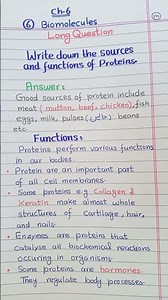 Ch-6
6 Biomolecules
Long Question
Write down the sources
and functions of Proteins.
Answer:
Good sources of protein include
meat (mutton, beef, chicken), fish
eggs, milk, pulses (دالیں) beans
etc
Functions:
Proteins perform various functions
in our bodies.
• Protein are an important part
of all cell membranes.
• Some proteins e.g Collagen &
Keratin make almost whole
structures of Cartilage, hair,
and nails.
• Enzymes are proteins that
catalyse all biochemical reactions
occuring in organisms.
• Some proteins are hormones.
They regulate body processes.